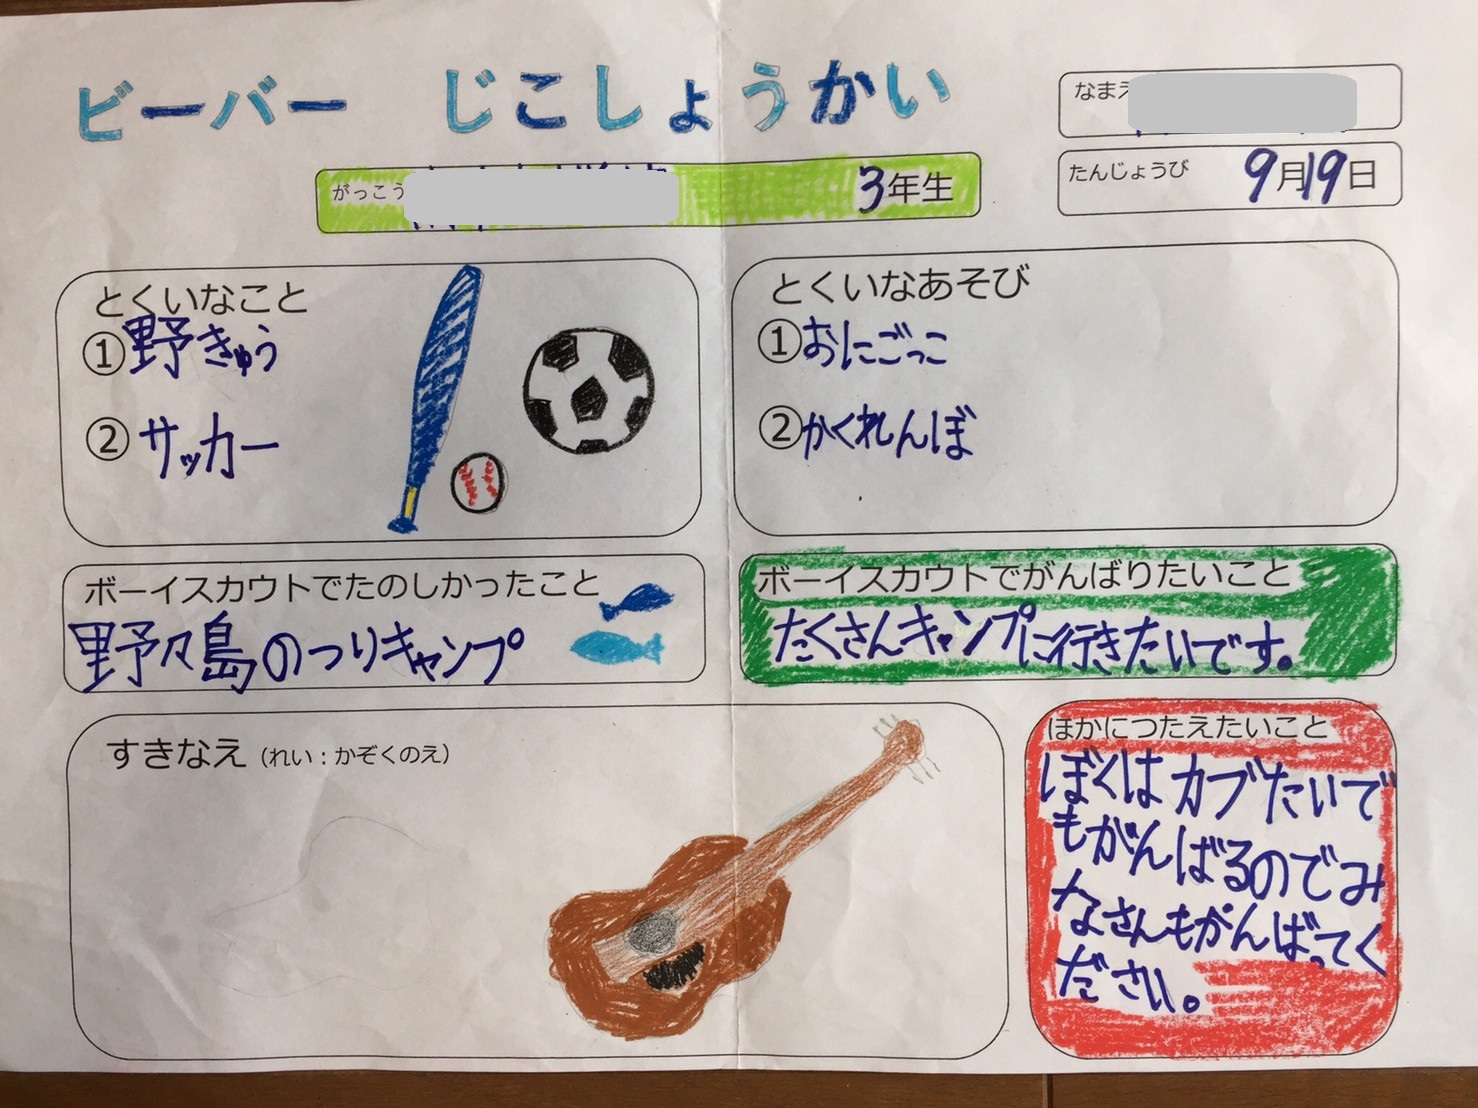 ビーバー じこしょうかい
なまえ
がっこう 3年生
たんじょうび 9月19日
とくいなこと
①野きゅう
②サッカー
とくいなあそび
①おにごっこ
②かくれんぼ
ボーイスカウトでたのしかったこと
野々島のつりキャンプ
ボーイスカウトでがんばりたいこと
たくさんキャンプに行きたいです。
すきなえ（れい：かぞくのえ）
ほかにつたえたいこと
ぼくはカブたいで
もがんばるのでみ
なさんもがんばってく
ださい。